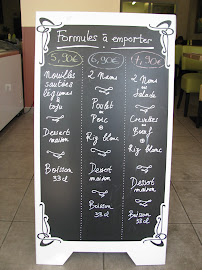 Formules à emporter
5,90€
Nouilles
sautées
légumes
&
tofu
Dessert
maison
Boisson
33 cl
6,90€
2 Nems
Poulet
Porc
Riz blanc
Dessert
maison
Boisson
33 cl
7,90€
2 Nems
ou
Salade
Crevettes
Boeuf
Riz blanc
Dessert
maison
Boisson
33 cl